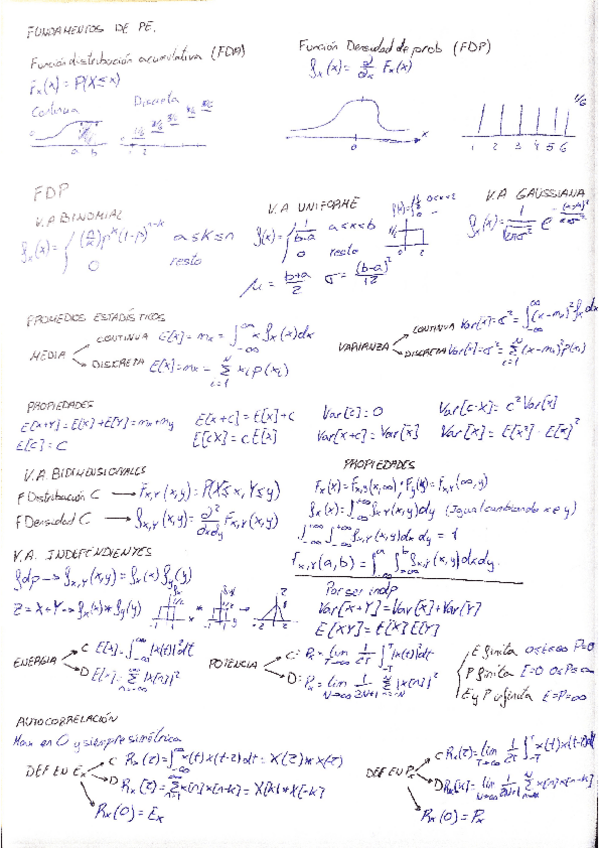 FUNDAMENTOS DE PE.
Función distribución acumulativa (FDA)
F_x(x) = P(X≤x)
Continua Discreta
Función Densidad de prob (FDP)
f_x(x) = ∂/∂x F_x(x)
0 x
1/6
1 2 3 4 5 6
FDP
V.A BINOMIAL
f_x(x) = { (n k) p^k (1-p)^(n-k) a≤K≤n
0 resto
V.A UNIFORME
f(x) = { 1/(b-a) a≤x≤b
0 resto
μ = (b+a)/2 σ = (b-a)²/12
V.A GAUSSIANA
f_x(x) = 1/√(2πσ²) e
PROMEDIOS ESTADÍSTICOS
MEDIA
CONTINUA E[x] = m_x = ∫_-∞^∞ x f_x(x)dx
DISCRETA E[x] = m_x = Σ_(i=1)^N x_i p(x_i)
VARIANZA
CONTINUA Var[x] = σ² = ∫_-∞^∞ (x-m_x)² f_x dx
DISCRETA Var[x] = σ² = Σ_(i=1)^N (x-m_x)² P(x_i)
PROPIEDADES
E[x+Y] = E[x]+E[Y] = m_x+m_y E[x+c] = E[x]+c Var[c] = 0 Var[c·X] = c² Var[x]
E[c] = C E[cX] = c E[x] Var[x+c] = Var[x] Var[X] = E[x²] - E[x]²
V.A. BIDIMENSIONALES
F Distribución C → F_x,Y(x,y) = P(X≤x, Y≤y)
F Densidad C → f_x,Y(x,y) = ∂²/∂x∂y F_x,Y(x,y)
PROPIEDADES
F_x(x) = F_x,y(x,∞) ; F_y(y) = F_x,Y(∞,y)
f_x(x) = ∫_-∞^∞ f_x,Y(x,y)dy (Igual cambiando x e y)
∫_-∞^+∞ ∫_-∞^+∞ f_x,Y(x,y)dx dy = 1
F_x,Y(a,b) = ∫_-∞^a ∫_-∞^b f_x,Y(x,y)dxdy.
V.A. INDEPENDIENTES
fdp → f_x,Y(x,y) = f_x(x) f_y(y)
Z = X+Y → f_x(x) * f_y(y)
Por ser indp
Var[X+Y] = Var[X]+Var[Y]
E[XY] = E[X]E[Y]
ENERGIA
C E[x] = ∫_-∞^∞ |x(t)|² dt
D E[x] = Σ_(n=-∞)^∞ |x[n]|²
POTENCIA
C: P_x = lim_(T→∞) 1/2T ∫_-T^T |x(t)|² dt
D: P_x = lim_(N→∞) 1/(2N+1) Σ_(n=-N)^N |x[n]|²
E finita 0≤E<∞ P=0
P finita E=∞ 0≤P≤∞
E y P infinita E=P=∞
AUTOCORRELACIÓN
Max en 0 y siempre simétrica
DEF EN E_x
C R_x(z) = ∫_-∞^∞ x(t)x(t-z)dt = X(z)*x(-z)
D R_x(z) = Σ x[n]x[n-k] = X[k]*X[-k]
R_x(0) = E_x
DEF EN P_x
C R_x(z) = lim_(T→∞) 1/2T ∫_-T^T x(t)x(t-z)dt
D R_x[k] = lim_(N→∞) 1/(2N+1) Σ x[n]x[n-k]
R_x(0) = P_x